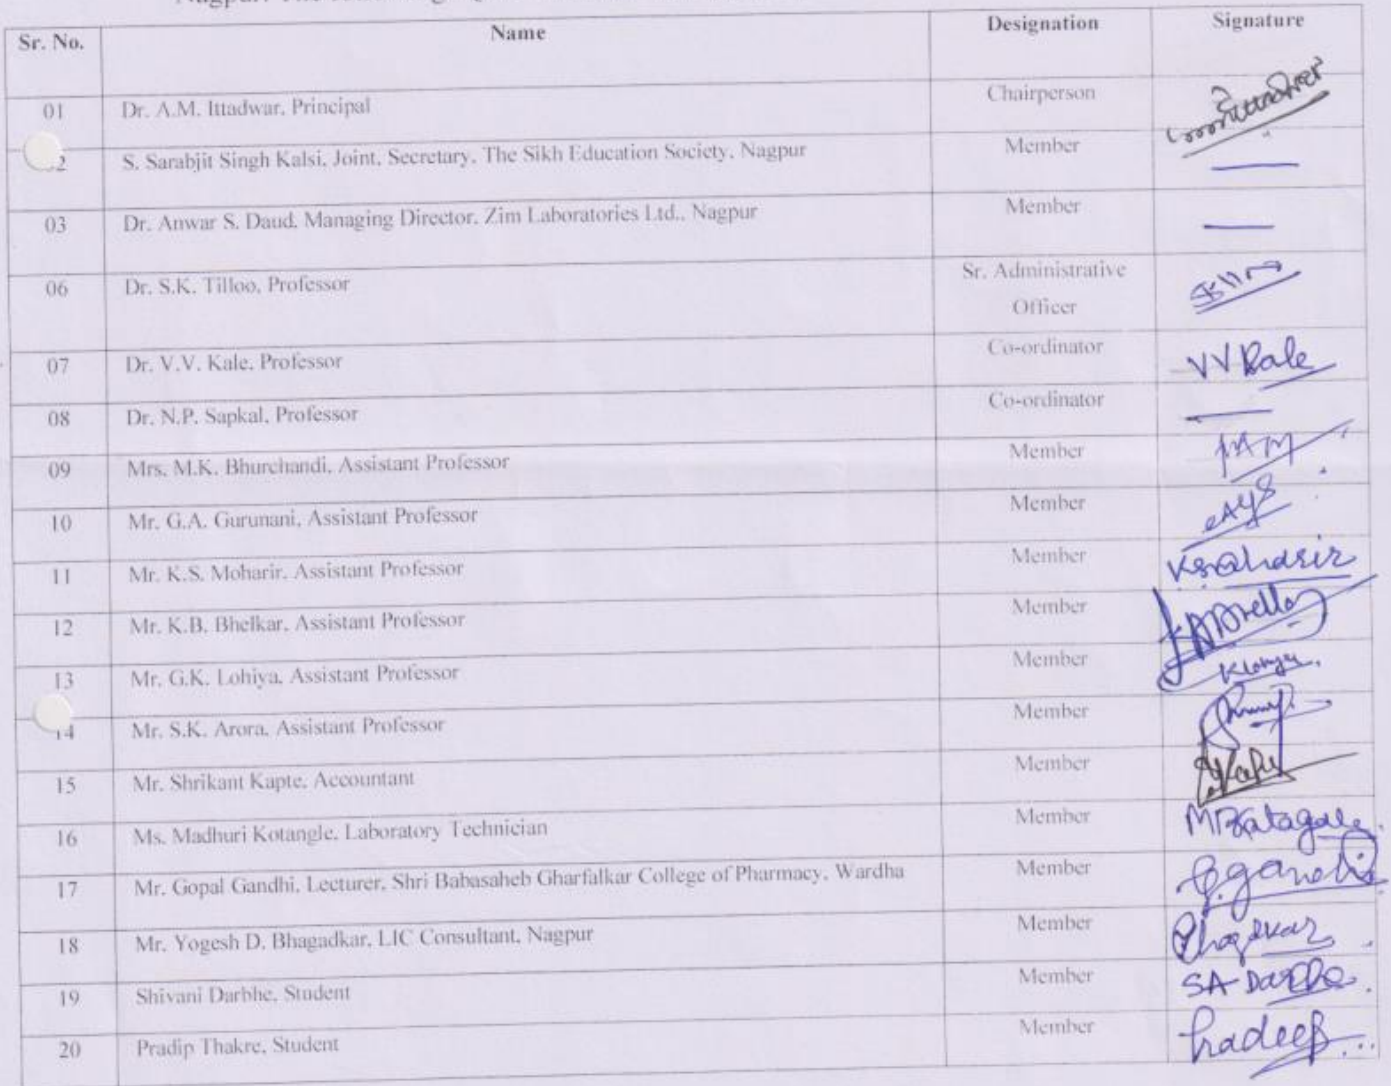 Sr. No. Name Designation Signature
01 Dr. A.M. Ittadwar, Principal Chairperson
2 S. Sarabjit Singh Kalsi, Joint, Secretary, The Sikh Education Society, Nagpur Member —
03 Dr. Anwar S. Daud, Managing Director, Zim Laboratories Ltd., Nagpur Member —
06 Dr. S.K. Tilloo, Professor Sr. Administrative
Officer
07 Dr. V.V. Kale, Professor Co-ordinator VVKale
08 Dr. N.P. Sapkal, Professor Co-ordinator —
09 Mrs. M.K. Bhurchandi, Assistant Professor Member
10 Mr. G.A. Gurunani, Assistant Professor Member
11 Mr. K.S. Moharir, Assistant Professor Member
12 Mr. K.B. Bhelkar, Assistant Professor Member
13 Mr. G.K. Lohiya, Assistant Professor Member
14 Mr. S.K. Arora, Assistant Professor Member
15 Mr. Shrikant Kapte, Accountant Member
16 Ms. Madhuri Kotangle, Laboratory Technician Member
17 Mr. Gopal Gandhi, Lecturer, Shri Babasaheb Gharfalkar College of Pharmacy, Wardha Member G.gandhi
18 Mr. Yogesh D. Bhagadkar, LIC Consultant, Nagpur Member
19 Shivani Darbhe, Student Member SA Darbhe.
20 Pradip Thakre, Student Member Pradeep...